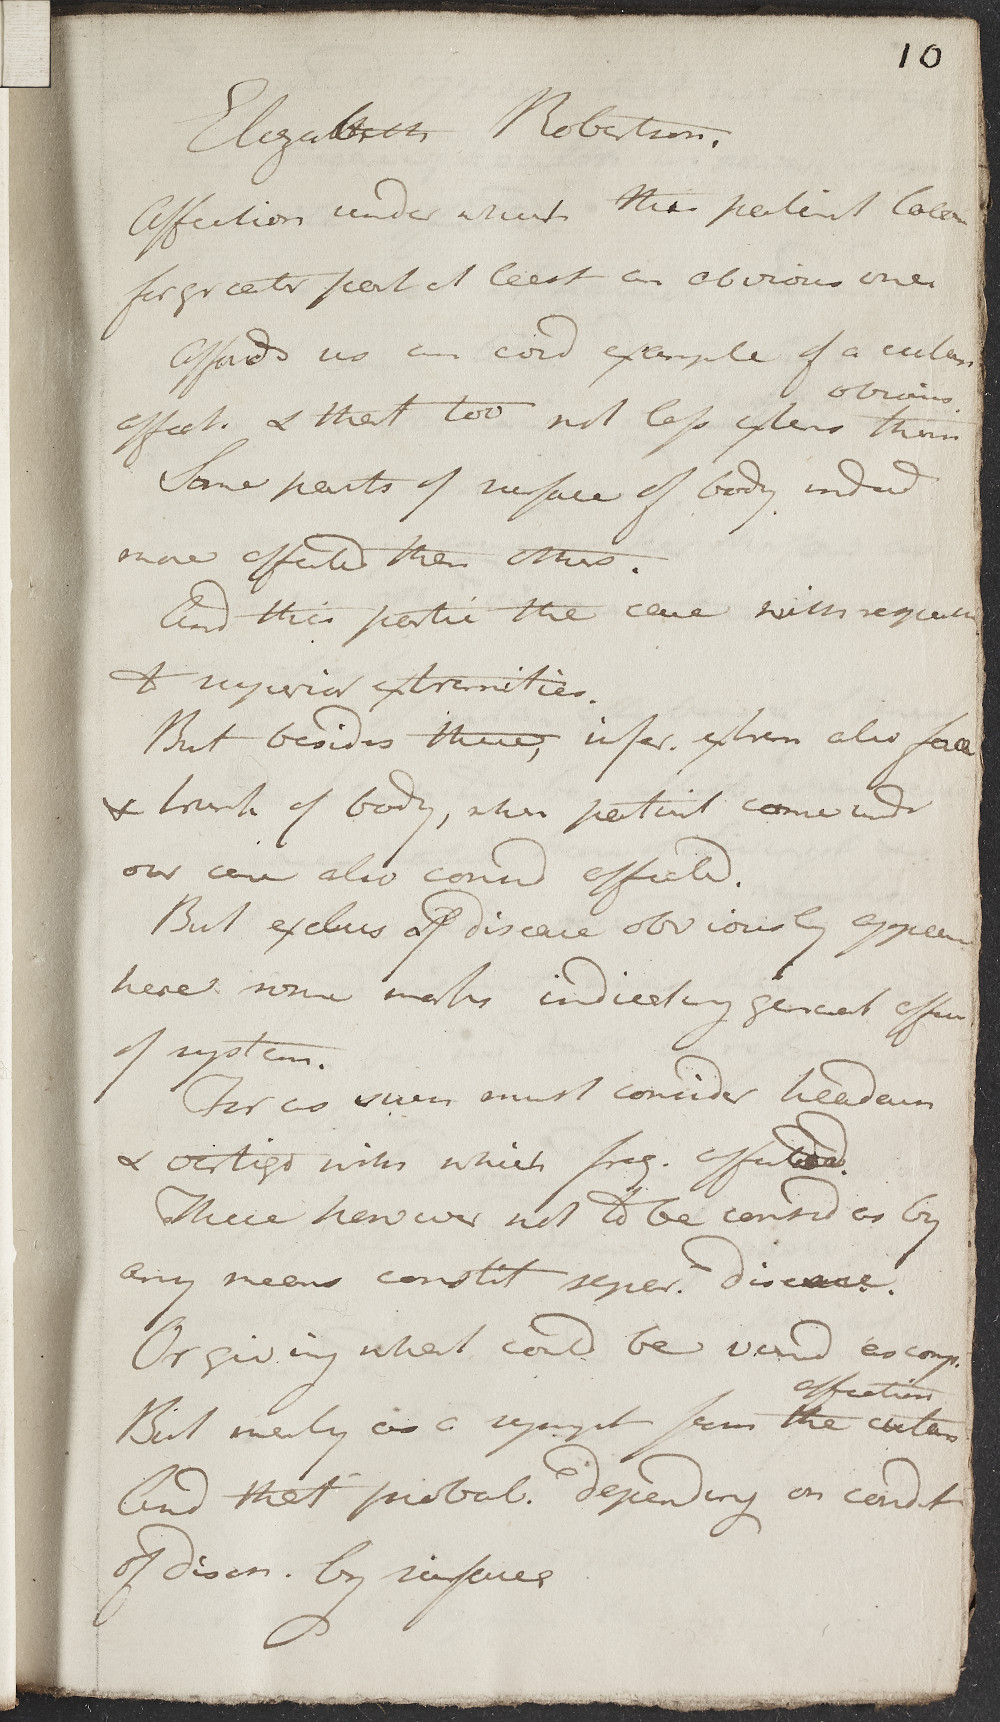 10
Elizabeth Robertson.
Affection under which this patient labou
for greater part at least an obvious one
Affords us an example of a cutan
obvious.
affect. & that too not less extens than
Some parts of surface of body indeed
more affected than others.
And this partic the case with respect
to superior extremities.
But besides these, infer. extrem also face
& trunk of body, when patient came undr
our care also consid affected.
But exclus of disease obviously appear
here some marks indicating general affec
of system.
For as such must consider headach
& vertigo with which freq. affected.
These however not to be consid as by
any means constit separ. disease.
Or giving what could be view'd as comp.
affection
But merely as a sympt from the cutan
And that probab. depending on condit
of disch. by surface